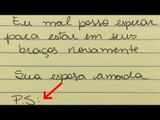 Eu mal posso esperar
para estar em seus
braços novamente.
Sua esposa amada.
P.S: